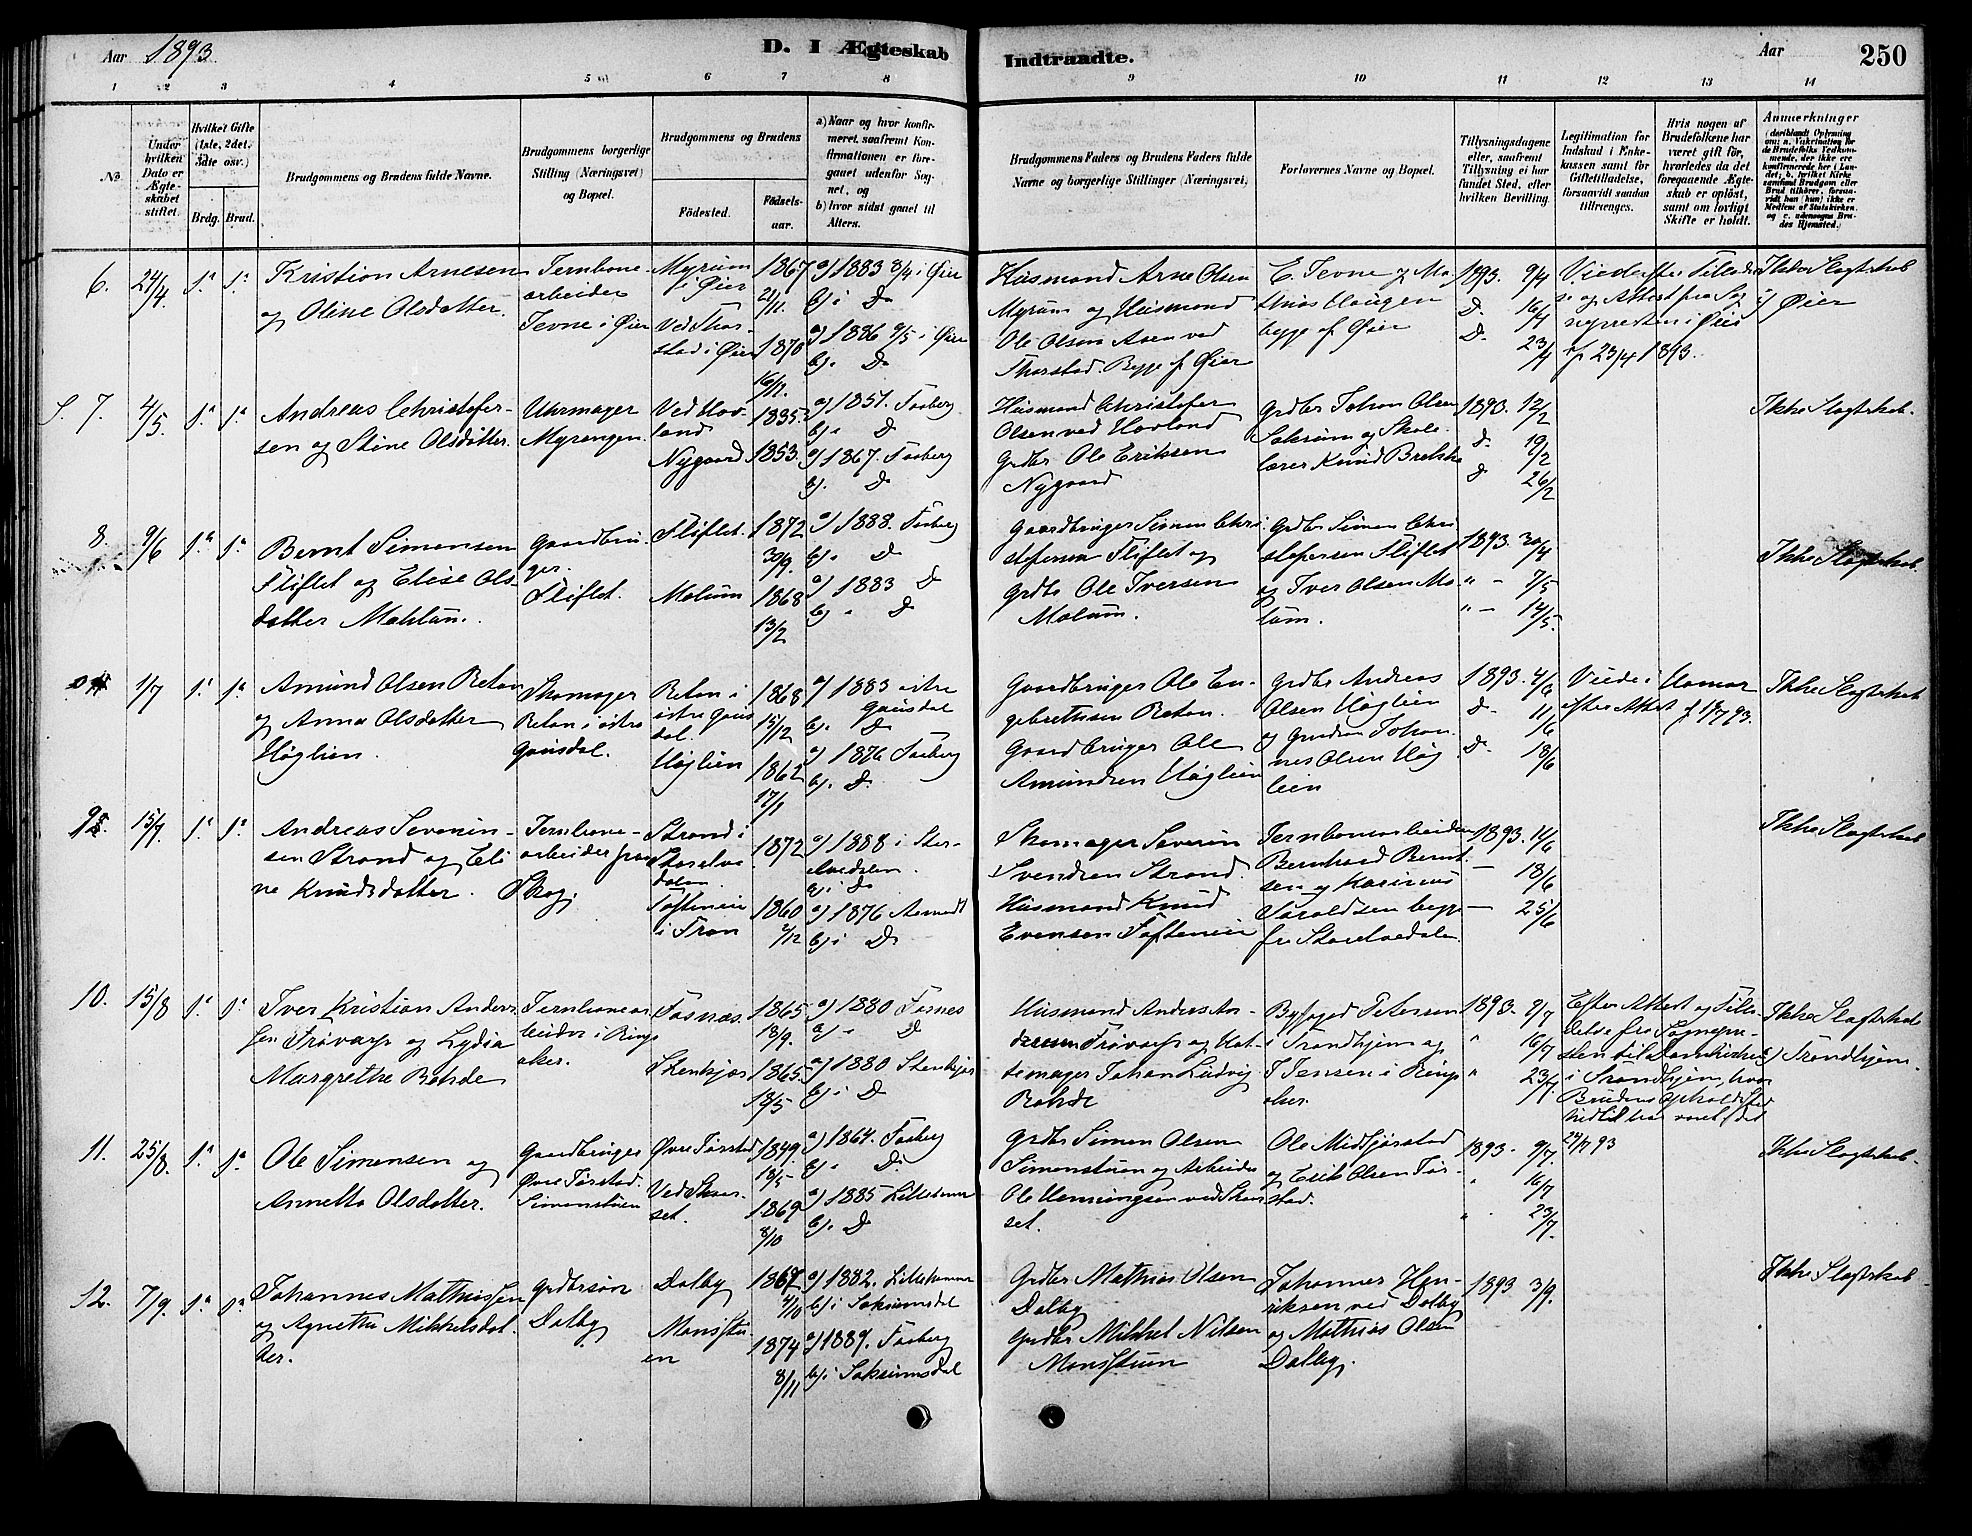 Aar 1893
D. I Ægteskab Indtraadte.
Aar
250
1 2 3 4 5 6 7 8 9 10 11 12 13 14
No.
Under hvilken Dato er Ægteskabet stiftet.
Hvilket Gifte (1ste, 2det, 3die osv.)
Brdg. Brud.
Brudgommens og Brudens fulde Navne.
Brudgommens borgerlige Stilling (Næringsvei) og Bopæl.
Brudgommens og Brudens
Födested.
Födsels-aar.
a) Naar og hvor konfirmeret, saafremt Konfirmationen er foregaaet udenfor Sognet, og
b) hvor sidst gaaet til Alters.
Brudgommens Faders og Brudens Faders fulde Navne og borgerlige Stillinger (Næringsvei).
Forlovernes Navne og Bopæl.
Tillysningsdagene eller, saafremt Tillysning ei har fundet Sted, efter hvilken Bevilling.
Legitimation for Indskud i Enkekassen samt for Giftetilladelse, forsaavidt saadan tiltrænges.
Hris nogen af Brudefolkene har været gift för, hvorledes da det foregaaende Ægteskab er oplöst, samt om lovligt Skifte er holdt.
Anmærkninger
6. 24/4. 1ª 1ª
Kristian Arnesen
og Oline Olsdatter.
Jernbane-
arbeider
Jevne i Øier
Myrum
i Øier
Ved Thor-
stad i Øier
1867
21/11.
1870
16/12.
a) 1883 8/4 i Øier
b) i D
a) 1886 9/5 i Øier
b). D
Husmand Arne Olsen
Myrum og Husmand
Ole Olsen Aasen ved
Thorstad. Begge af Øier
E. Jevne og Ma-
thias Haugen
begge af Øier
1893. 9/4
D. 16/4
D. 23/4
Viede efter Tilladel-
se og Attest fra Sog
nepresten i Øier
af 23/4 1893.
Ikke Slægtskab
Øier
7. 4/5. 1ª 1ª
Andreas Christofer-
sen og Stine Olsdatter.
Uhrmager
Myrengen.
Ved Hov-
land
Nygaard
1835.
1853.
a) 1851. Faaberg
b) i D
a) 1867. Faaberg
b). D
Husmand Christofer
Olsen ved Hovland
Grdbr Ole Eriksen
Nygaard
Grdbr Johan Olsen
Saksum og Skole-
lærer Knud
1893. 12/2
d. 19/2
d 26/2
Ikke Slægtskab.
8. 9/6 1ª 1ª
Bernt Simensen
Fliflet og Elise Ols
datter Mahlum.
Gaardbru-
ger.
Fliflet.
Fliflet.
Molum
1872
30/9.
1868
13/2
a) 1888. Faaberg
b). D
a) 1883 D
b) . D
Gaardbruger Simen Chri
stofersen Fliflet og
Grdbr Ole Iversen
Molum.
Grdbr Simen Chri
stofersen Fliflet
og Iver Olsen Mo
lum.
1893. 30/4
" - 7/5
" - 14/5.
Ikke Slægtskab.
1/7 1ª 1ª
Amund Olsen Retan
og Anna Olsdatter
Höglien.
Skomager
Retan i østre
Gausdal.
Retan i
østre Gaus
dal.
Höglien
1868
15/12
1862
17/1
a) 1883 østre
Gausdal
b). D
a) 1876 Faaberg
b). D.
Gaardbruger Ole En-
gebrethsen Retan.
Gaardbruger Ole
Amundsen Höglien
Grdbr Andreas
Olsen Höglien
og Johan-
nes Olsen Hög
lien
1893. 4/6
D. 11/6
D. 18/6
Viede i Hamar
efter Attest af 1/7 93.
Ikke Slægtskab
9. 15/7. 1ª 1ª
Andreas Severin-
sen Strand og Eli
ne Knudsdatter.
Jernbane-
arbeider fra
Skog.
Strand i
Storelve
dalen.
Toftemeie
i Fron
1872
1860
2/12
a) 1888 i Stor-
elvedalen.
b). D
a) 1876
b) i D
Skomager Severin
Svendsen Strand.
Husmand Knud
Evensen Toftemeie
Jernbanearbeider
Bernhard Bernt-
sen og Karinus
Haraldsen begge
fra Storelvedalen.
1893. 11/6
— 18/6
— 25/6
Ikke Slægtskab
10. 15/8 1ª 1ª
Iver Kristian Anders
sen Frövarp og Lydia
Margrethe Rohde
Jernbanear
beider i Rings
aker.
Fosnæs.
Stenkjær
1865
13/9.
1865
18/5
a) 1880 Fosnes
a). D
a) 1880 Stenkjær
b) i D
Husmand Anders An-
dersen Frövarp og Hat-
temager Johan Ludvig
Rohde
Byfoged Petersen
i Trondhjem og
J Jensen i Rings
aker.
1893. 9/7
" 16/7
" 23/7.
Efter Attest og Tilla-
delse fra Sognepre-
sten til Domkirken
i Trondhjem, hvor
Brudens Ophold sted
hidtil har været, dat
24/7 93
Ikke Slægtskab
Trondhjem.
11. 25/8. 1ª 1ª
Ole Simensen og
Annetta Olsdatter.
Gaardbruger
Øvre Jørstad.
Simenstuen
Øvre Jørstad
Ved Skur-
set.
1849.
18/5
1869
8/10
a) 1864. Faaberg
b). D.
a) 1885 Lillehammer
b). D
Grdbr Simen Olsen
Simenstuen og Arbeider
Ole Henningsen ved Skur
set.
Ole Midtjørstad
og Erik Olsen Jør-
stad.
1893. 9/7.
" 16/7
" 23/7.
Ikke Slægtskab.
12. 7/9. 1ª 1ª
Johannes Mathiassen
og Agnethe Mikkelsdat
ter.
Grdbrsön
Dalby
Dalby
Monsstu
en
1867
4/10
1874
8/11
a) 1882. Lillehammer
b) i Saksumsdal
a) 1889. Faaberg
b) i Saksumsdal
Grdbr Mathias Olsen
Dalby
Grdbr Mikkel Nilsen
Monsstuen
Johannes Hen-
riksen ved Dalby
og Mathias Olsen
Dalby.
1893 3/9.
Ikke Slægtskab